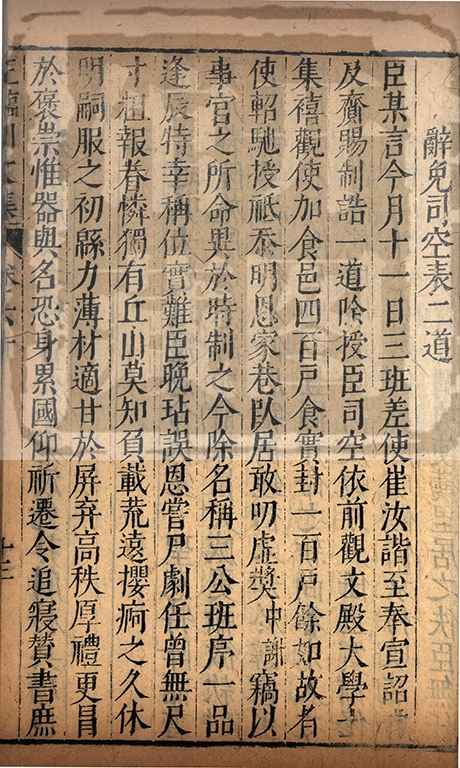 辭免司空表二道
臣某言今月十一日三班差使崔汝諧至奉宣詔
及齎賜制誥一道除授臣司空依前觀文殿大學士
集禧觀使加食邑四百戶食實封一百戶餘如故者
使軺馳授祗奉明恩家巷臥居敢叨虛獎中謝竊以
事官之所命異於時制之今除名稱三公班序一品
逢辰特幸稱位實難臣晚玷誤恩嘗尸劇任曾無尺
寸粗報眷憐獨有丘山莫知負載荒遠攖痾之久休
明嗣服之初緜力薄材適甘於屏弃高秩厚禮更冒
於褒崇惟器與名恐身累國仰祈遷令追寢贊書庶
王臨川文集 卷六十 十三